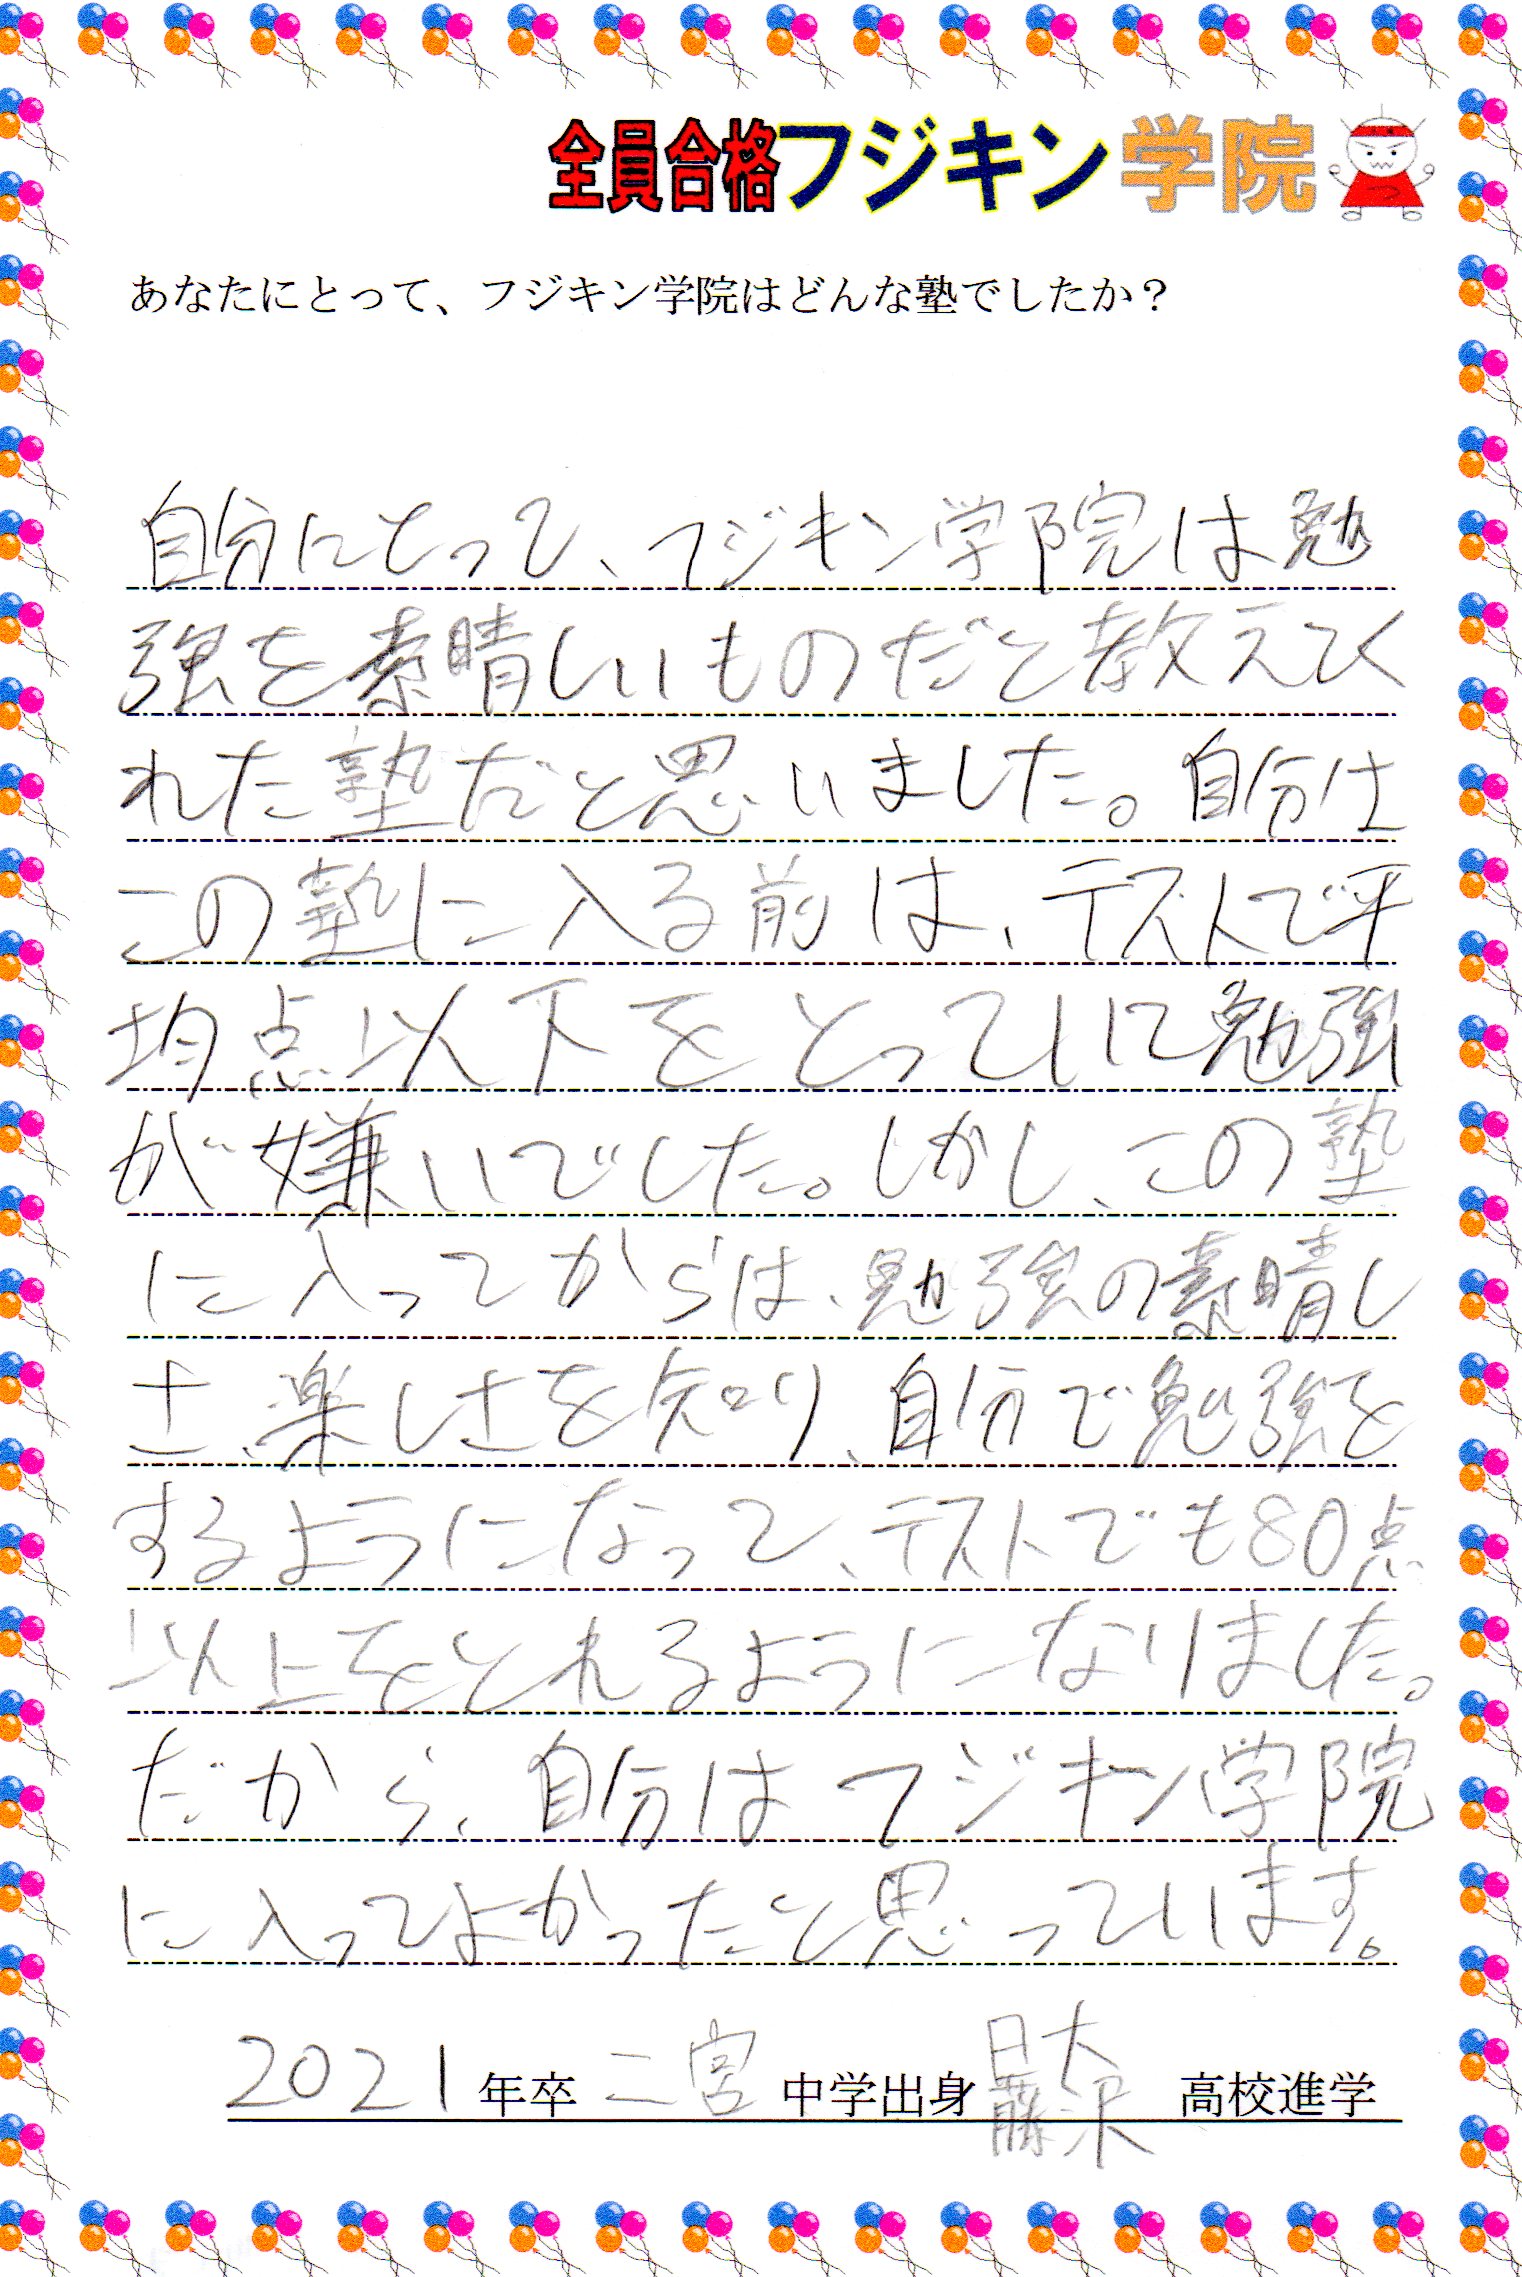 全員合格フジキン学院
あなたにとって、フジキン学院はどんな塾でしたか？
自分にとって、フジキン学院は勉
強を素晴しいものだと教えてく
れた塾だと思いました。自分は
この塾に入る前は、テストで平
均点以下をとっていて勉強
が嫌いでした。しかし、この塾
に入ってからは、勉強の素晴し
さ、楽しさを知り、自分で勉強を
するようになって、テストでも80点
以上をとれるようになりました。
だから、自分はフジキン学院
に入ってよかったと思っています。
2021年卒 二宮 中学出身 日大藤沢 高校進学